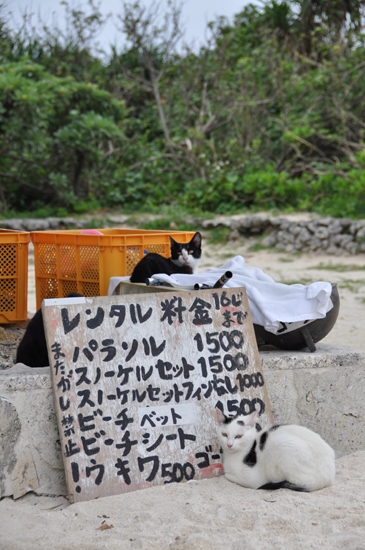 レンタル料金 16じまで
パラソル 1500
スノーケルセット 1500
スノーケルセットフィンなし 1000
ビーチベット 1500
ビーチシート
ウキワ 500
またがし禁止!